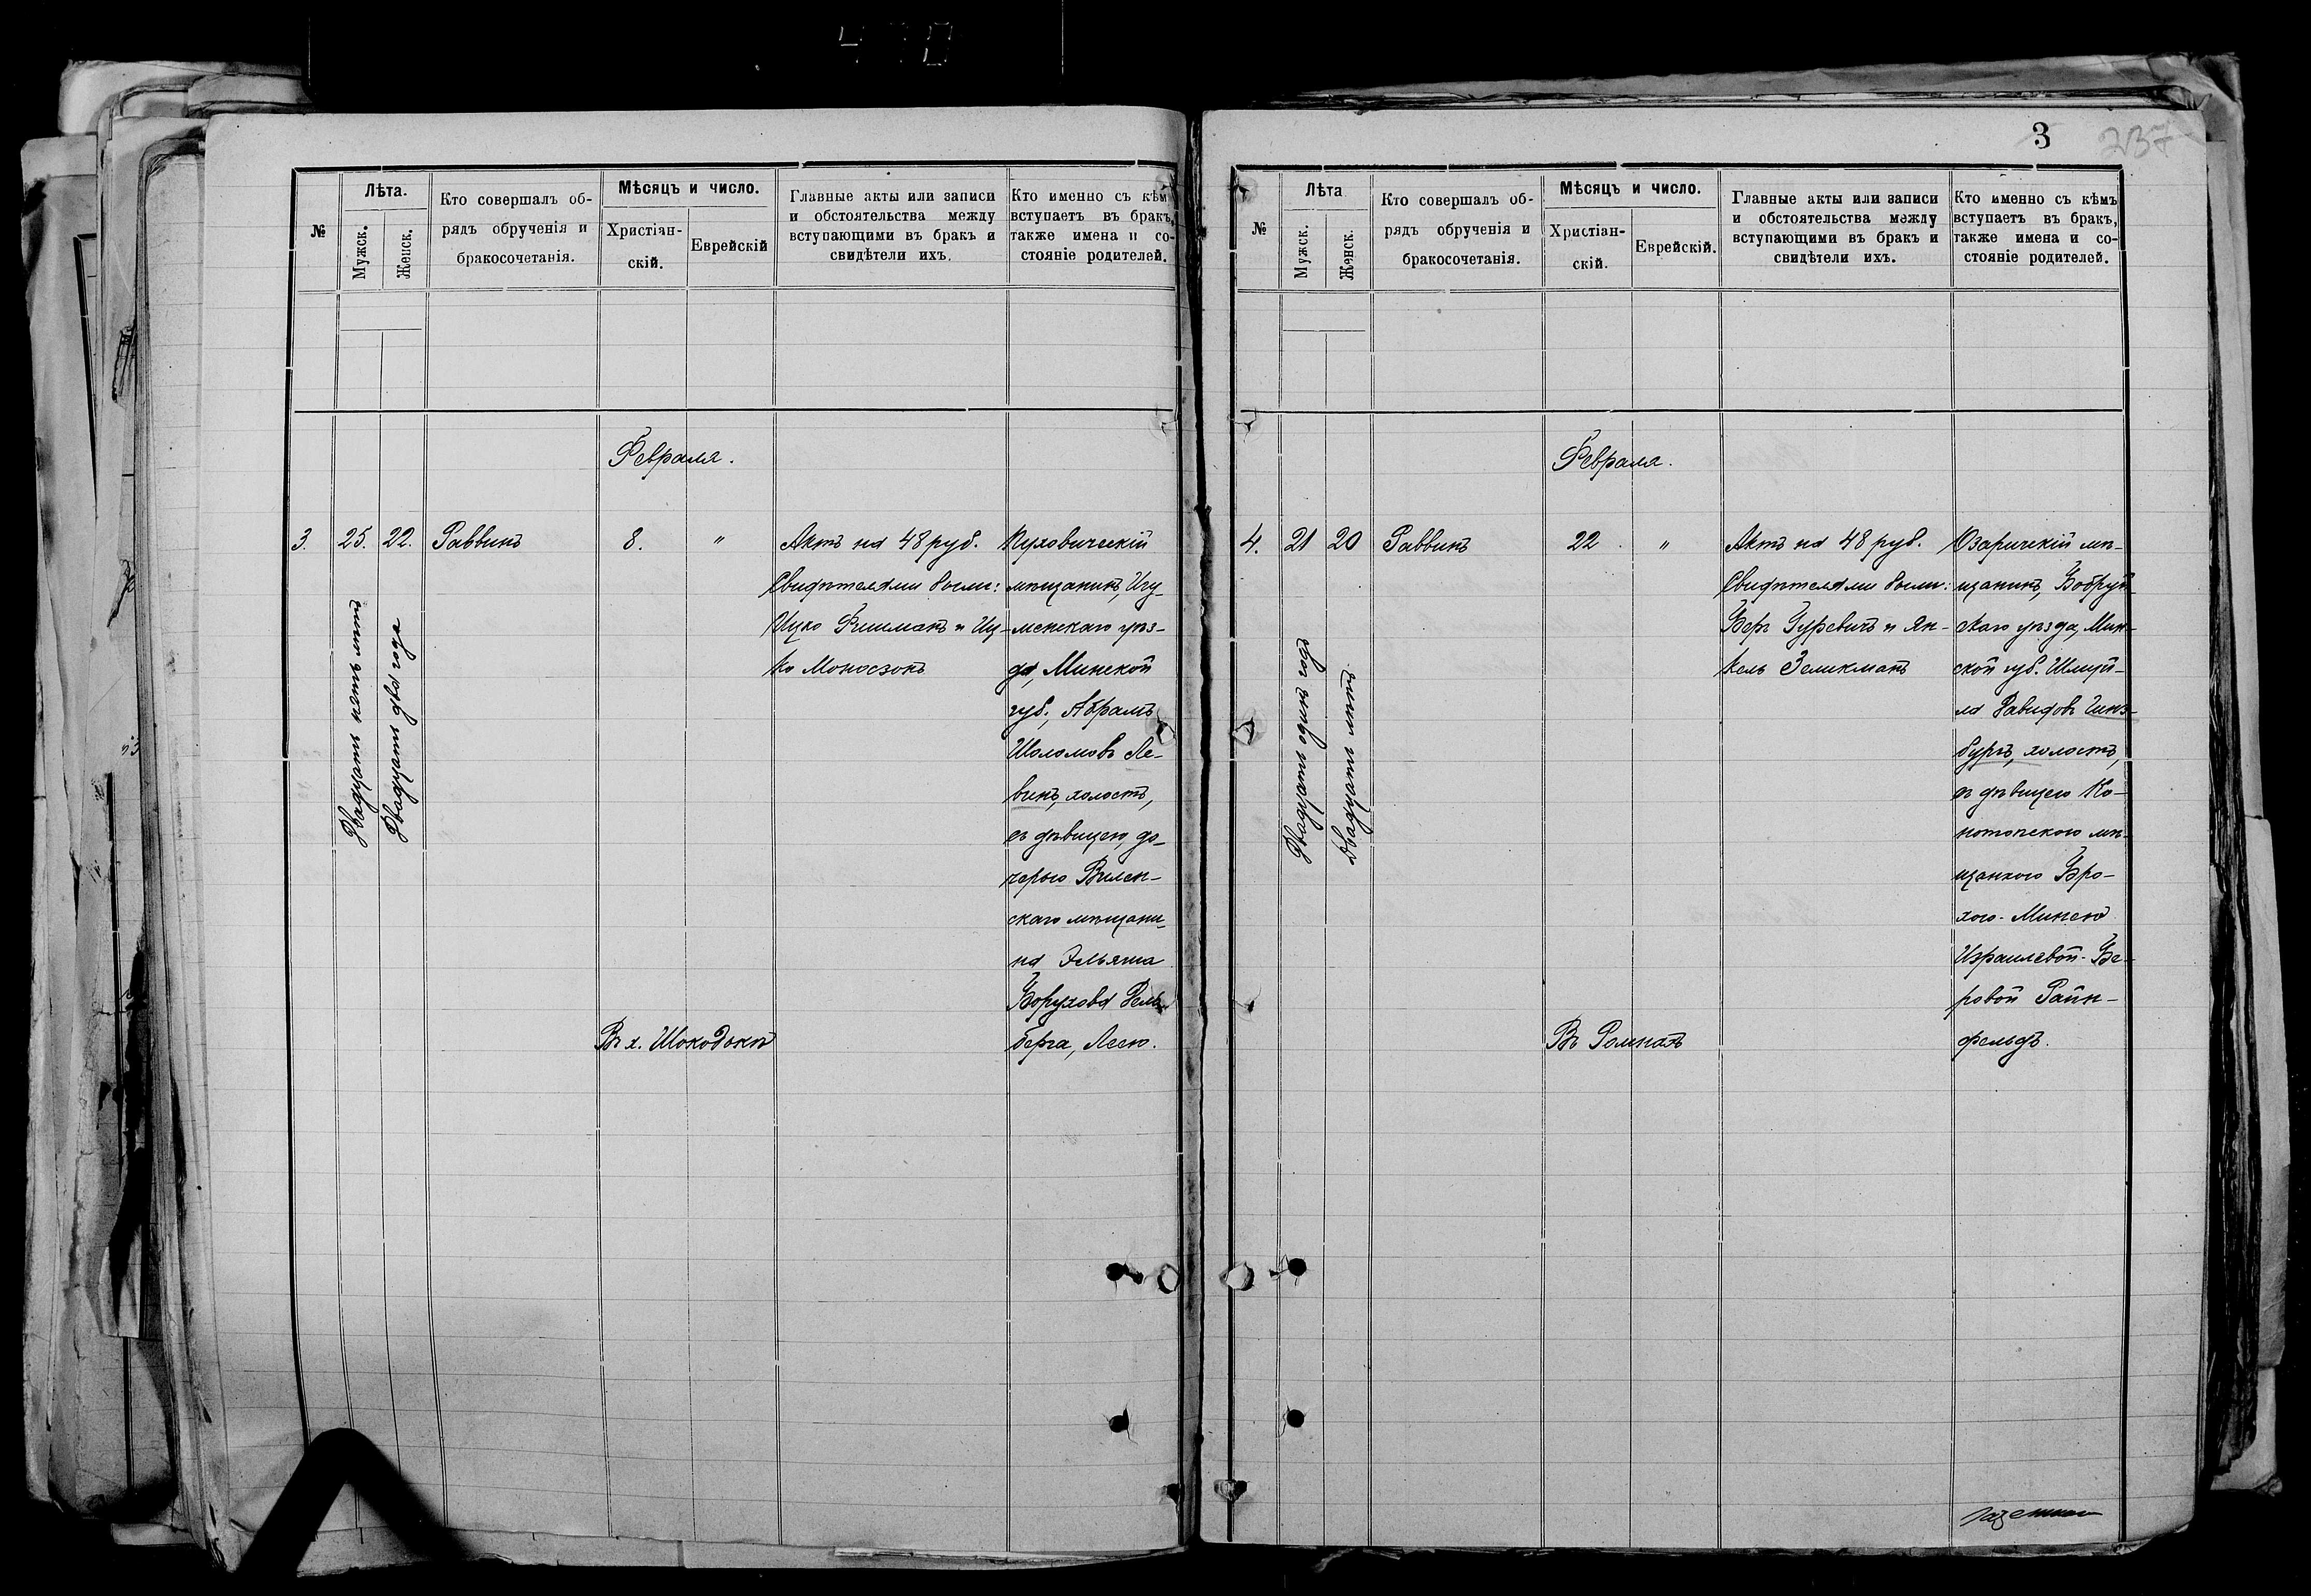 №
Лѣта.
Мужск.
Женск.
Кто совершалъ об-
рядъ обрученія и
бракосочетанія.
Мѣсяцъ и число.
Христіан-
скій.
Еврейскій
Главные акты или записи
и обстоятельства между
вступающими въ бракъ и
свидѣтели ихъ.
Кто именно съ кѣмъ
вступаетъ въ бракъ,
также имена и со-
стояніе родителей.
Февраля.
3.
25.
Двадцать пять лѣтъ
22.
Двадцать два года
Раввинъ
8.
"
Въ х.
Актъ на 48 руб.
Свидѣтелями были:
Ицко Фишманъ и Иц-
ко Моносзонъ
Пуховическій
мѣщанинъ, Игу-
менскаго уѣз-
да, Минской
губ., Абрамъ
Шоломовъ Ле-
винъ, холостъ,
съ дѣвицею, до-
черью Вилен-
скаго мѣщани-
на Эльяша
Борухова Гель
берга, Леею.
3
237
№
Лѣта
Мужск.
Женск.
Кто совершалъ об-
рядъ обрученія и
бракосочетанія.
Мѣсяцъ и число.
Христіан-
скій.
Еврейскій.
Главные акты или записи
и обстоятельства между
вступающими въ бракъ и
свидѣтели ихъ.
Кто именно съ кѣмъ
вступаетъ въ бракъ,
также имена и со-
стояніе родителей.
Февраля.
4.
21
Двадцать одинъ годъ
20
Двадцать лѣтъ
Раввинъ
22
"
Въ Ромнахъ
Актъ на 48 руб.
Свидѣтелями были:
Беръ Гуревичъ и Ян-
кель Зеликманъ
Озаричскій мѣ-
щанинъ, Бобруй-
скаго уѣзда, Мин-
ской губ. Шмуй-
ла Давидовъ Гинз-
бургъ, холостъ,
съ дѣвицею Ко-
нотопскою мѣ-
щанкою Бро-
хою-Минею
Израилевой-Бе-
ровой Райн-
фельдъ.